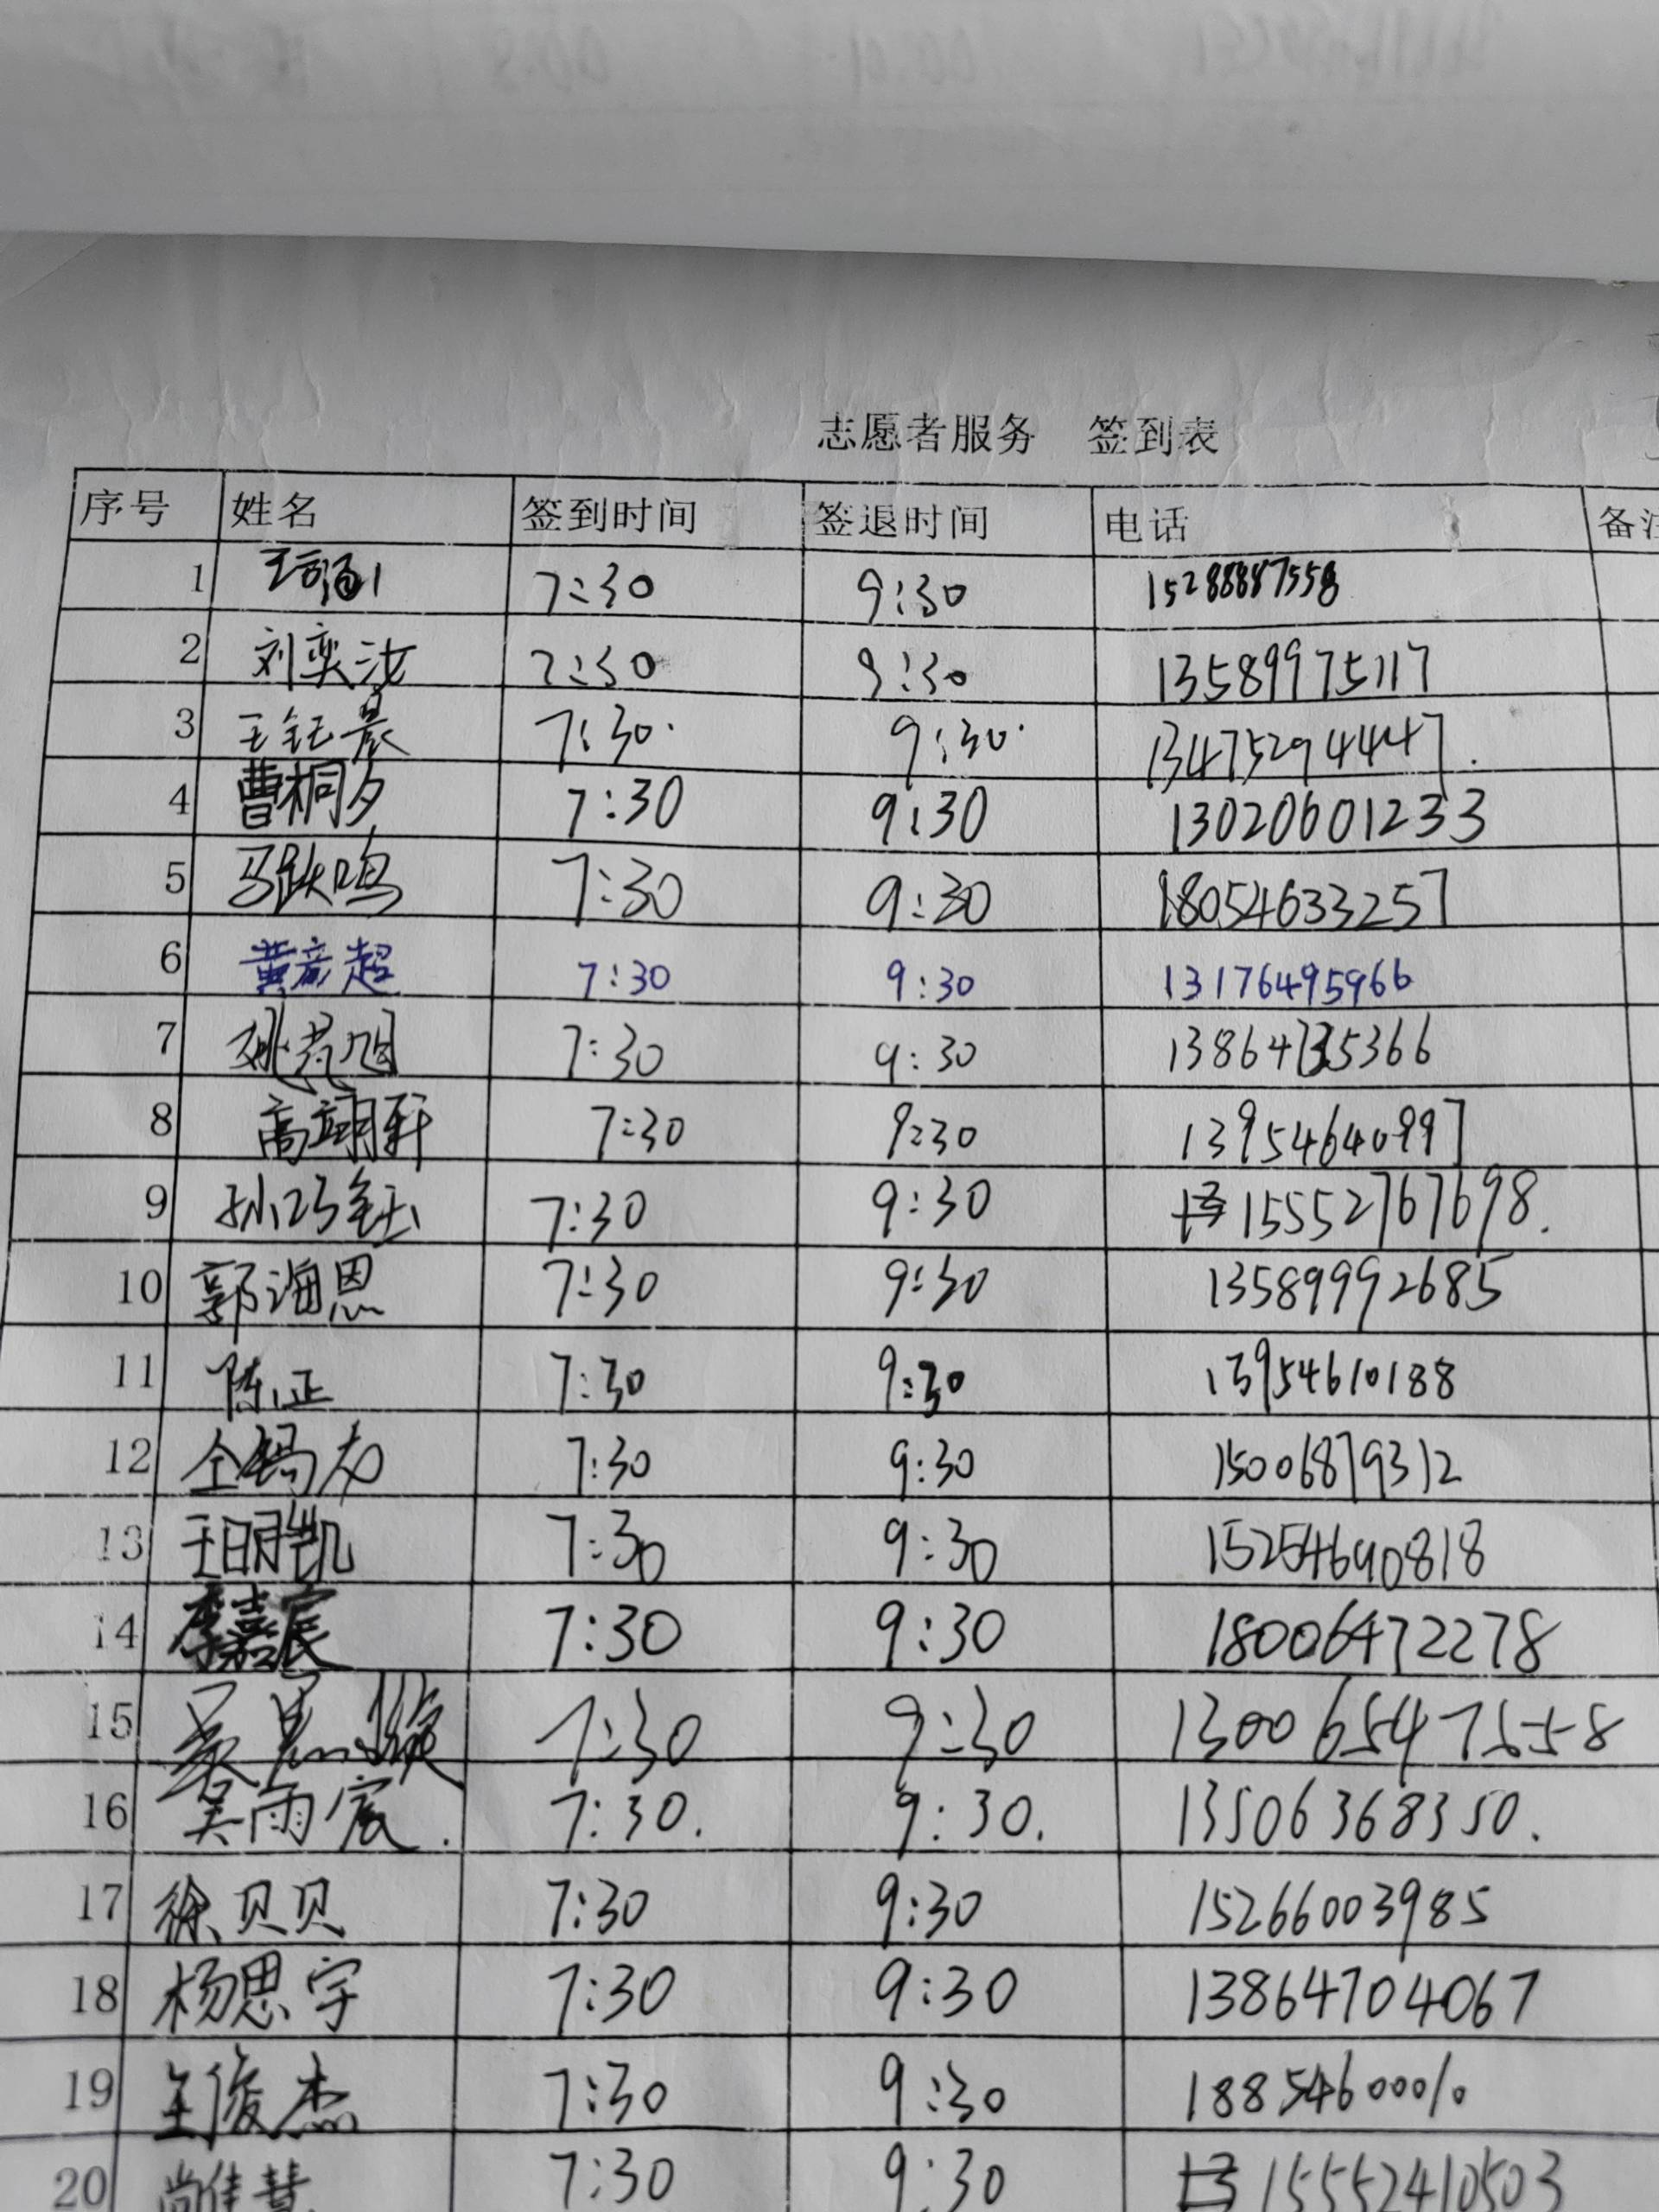 志愿者服务 签到表
序号 姓名 签到时间 签退时间 电话 备注
1 7:30 9:30 15288887558
2 刘奕汝 7:30 9:30 13589975117
3 王钰晨 7:30. 9:30. 13475294447.
4 曹桐夕 7:30 9:30 13020601233
5 马跃鸣 7:30 9:30 18054633257
6 黄彦超 7:30 9:30 13176495966
7 姚芃旭 7:30 9:30
8 高翊轩 7:30 9:30 13954640997
9 孙巧钰 7:30 9:30 15552767698.
10 郭海恩 7:30 9:30 13589992685
11 陈正 7:30 9:30 13954610188
12 7:30 9:30 15006879312
13 王明凯 7:30 9:30 15254690818
14 李嘉宸 7:30 9:30 18006472278
15 7:30 9:30 13006547558
16 吴雨宸. 7:30. 9:30. 13506368350.
17 徐贝贝 7:30 9:30 15266003985
18 杨思宇 7:30 9:30 13864704067
19 王俊杰 7:30 9:30 18854600010
20 尚佳慧 7:30 9:30 15552410503